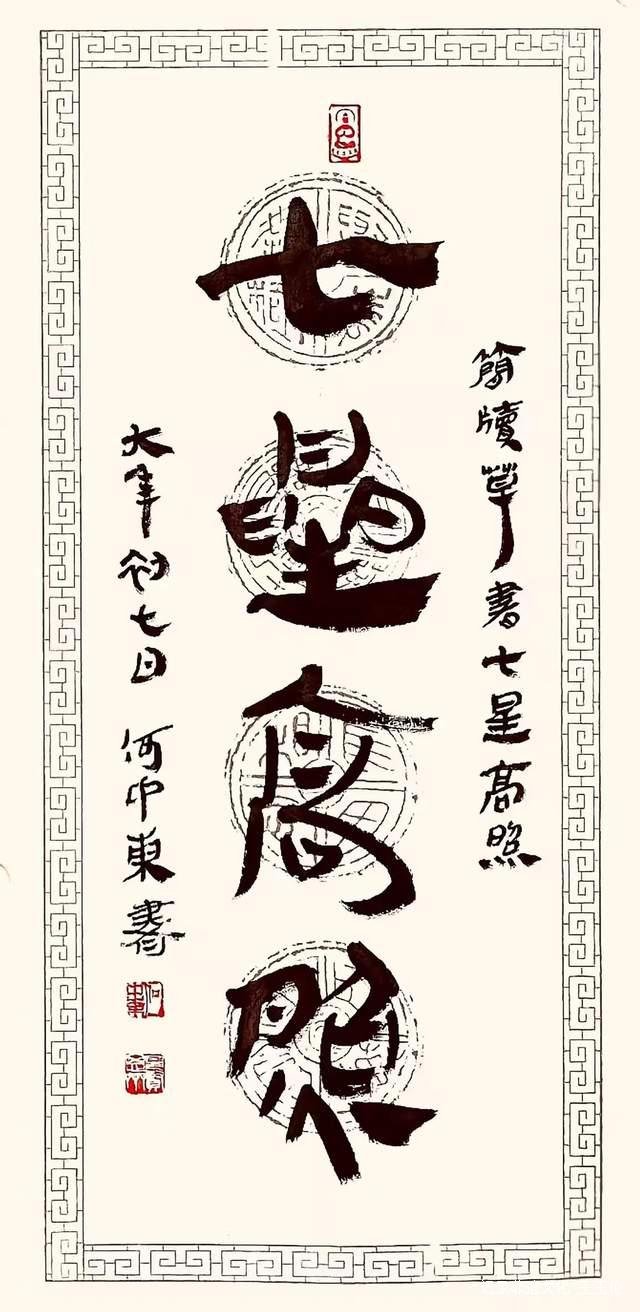 簡牘草書七星高照
七星高照
大年初七日 何中東
何中東